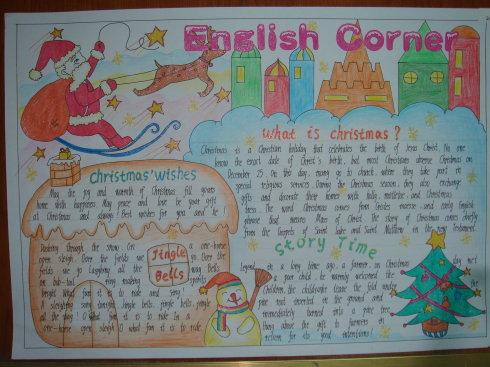 English Corner
What is christmas?
Christmas is a Christian holiday that celebrates the birth of Jesus Christ. No one
know the exact date of Christ's birth, but most Christians observe Christmas on
December 25. On this day, many go to church, where they take part in
special religious services. During the Christmas season, they also exchange
gifts and decorate their homes with holly, mistletoe, and Christmas
trees. The word Christmas comes from Cristes maesse, and early English
phrase that means Mass of Christ. The story of Christmas comes chiefly
from the Gospels of Saint Luke and Saint Matthew in the new testament.
Christmas' Wishes
May the joy and warmth of Christmas fill your
home with happiness. May peace and love be your gift
at Christmas and always! Best wishes for you and me!
Jingle
Bells
Dashing through the snow On a one-horse
open sleigh Oer the fields we go
fields we go Laughing all the way Bells
on bob-tail ring making spirits
bright What fun it is to ride and sing
A sleighing song tonight Jingle bells, jingle bells, jingle
all the way! O what fun it is to ride In a
one-horse open sleigh O what fun it is to ride
Story Time
Legend: in a long time ago, a farmer, in Christmas day met
a poor child, he warmly welcomed the
children, the child
pine and inserted in the ground and
immediately turned into a pine tree,
they above the gift to farmers in
return for its good intentions!